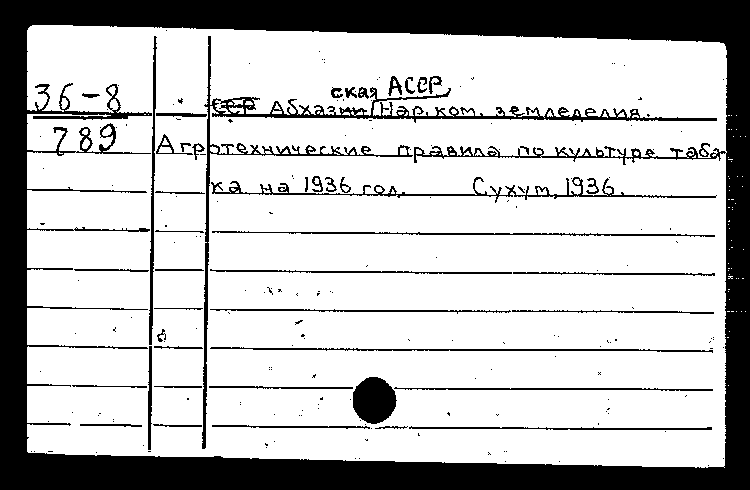 ская АССР
36-8 ССР Абхазии Нар. ком. земледелия.
789 Агротехнические правила по культуре таба-
ка на 1936 год. Сухум, 1936.